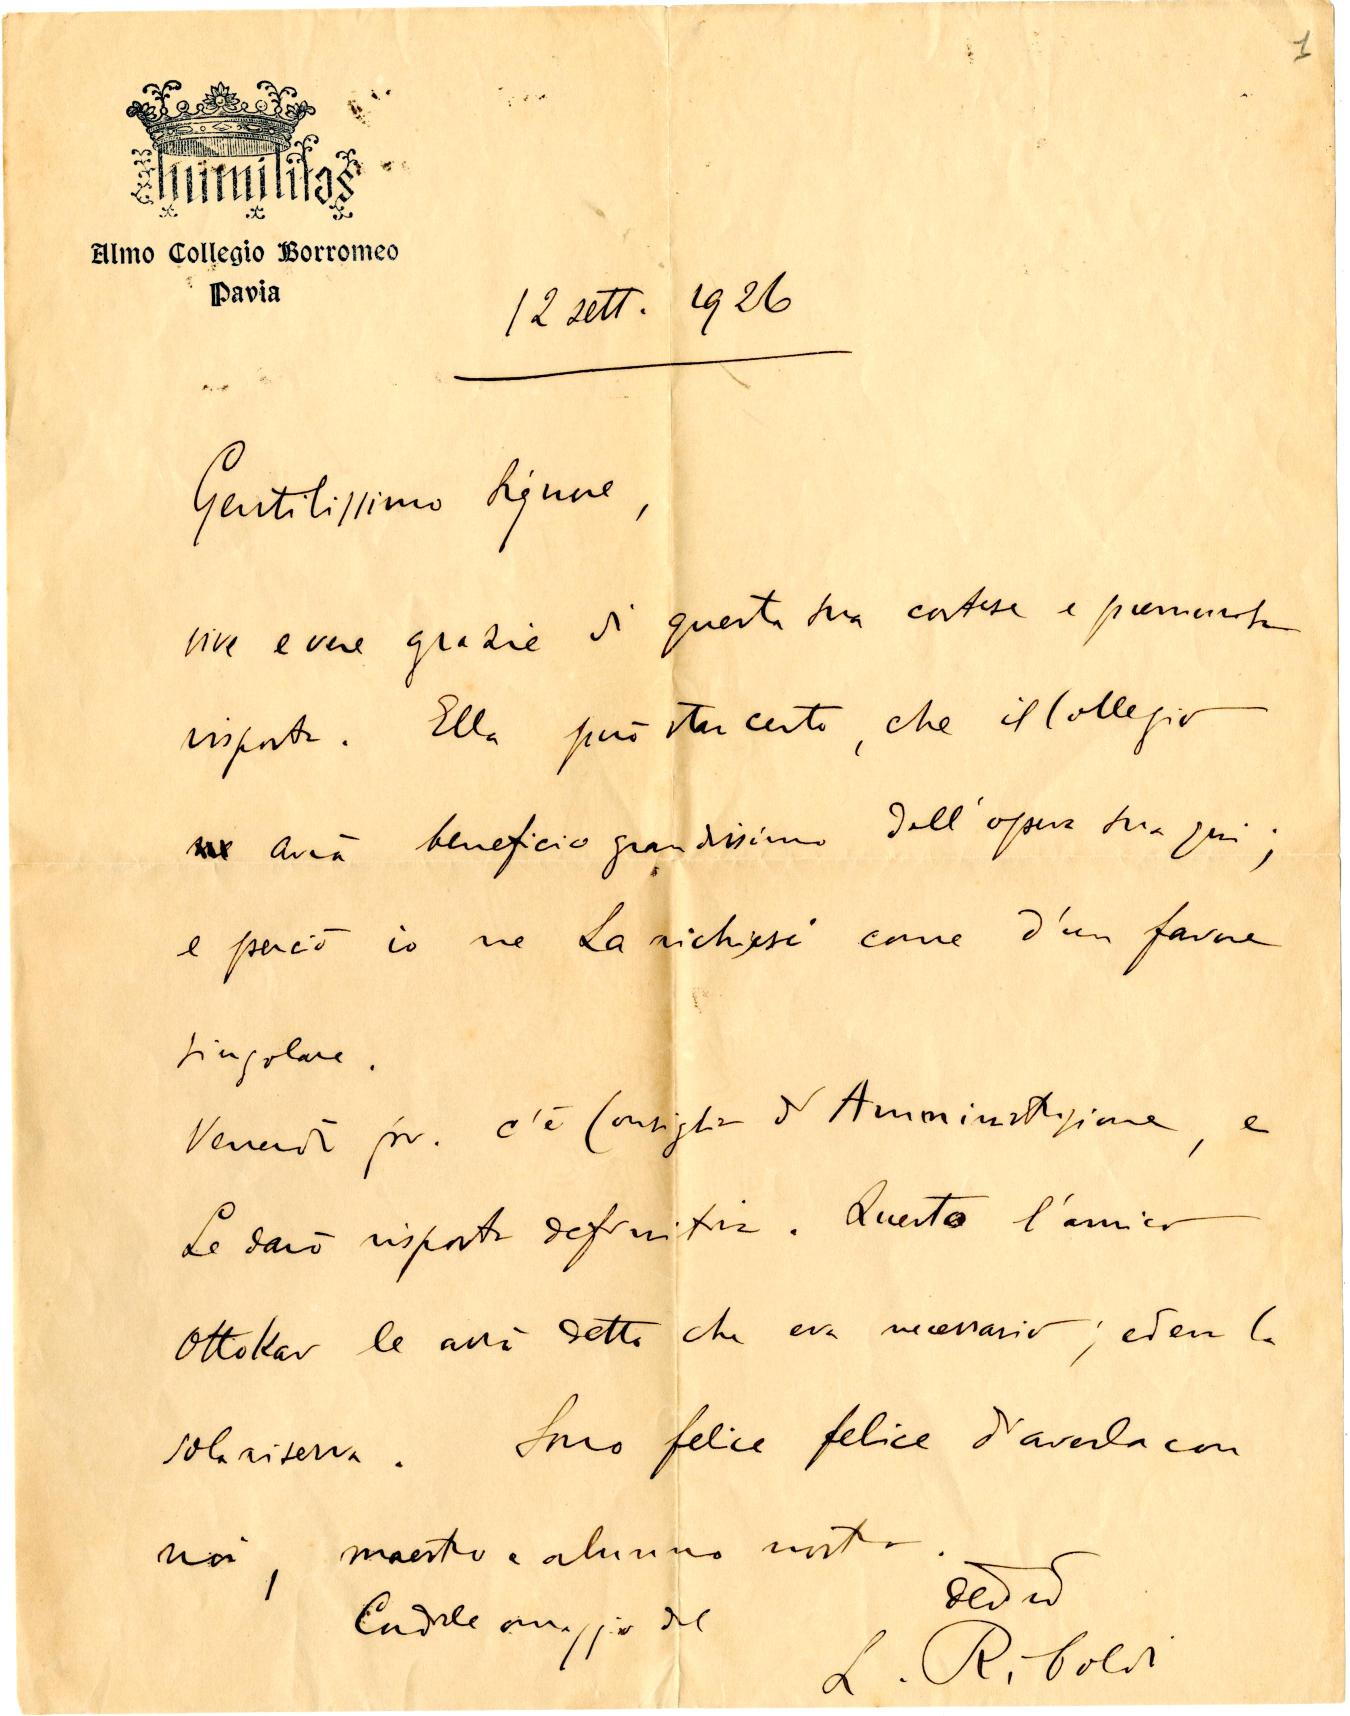 1
humilitas
Almo Collegio Borromeo
Pavia
12 sett. 1926
Gentilissimo Signore,
vive e vere grazie di questa sua cortese e premurosa
risposta. Ella può star certo, che il Collegio
ne avrà beneficio grandissimo dall'opera sua qui;
e perciò io ne La richiesi come d'un favore
singolare.
Venerdì pv. c'è Consiglio d'Amministrazione, e
Le darò risposta definitiva. Questo l'amico
Ottokar le avrà detto che era necessario; ed era la
sola riserva. Sono felice felice d'averla con
noi, maestro e alunno nostro.
Cordiale omaggio del
L. Riboldi